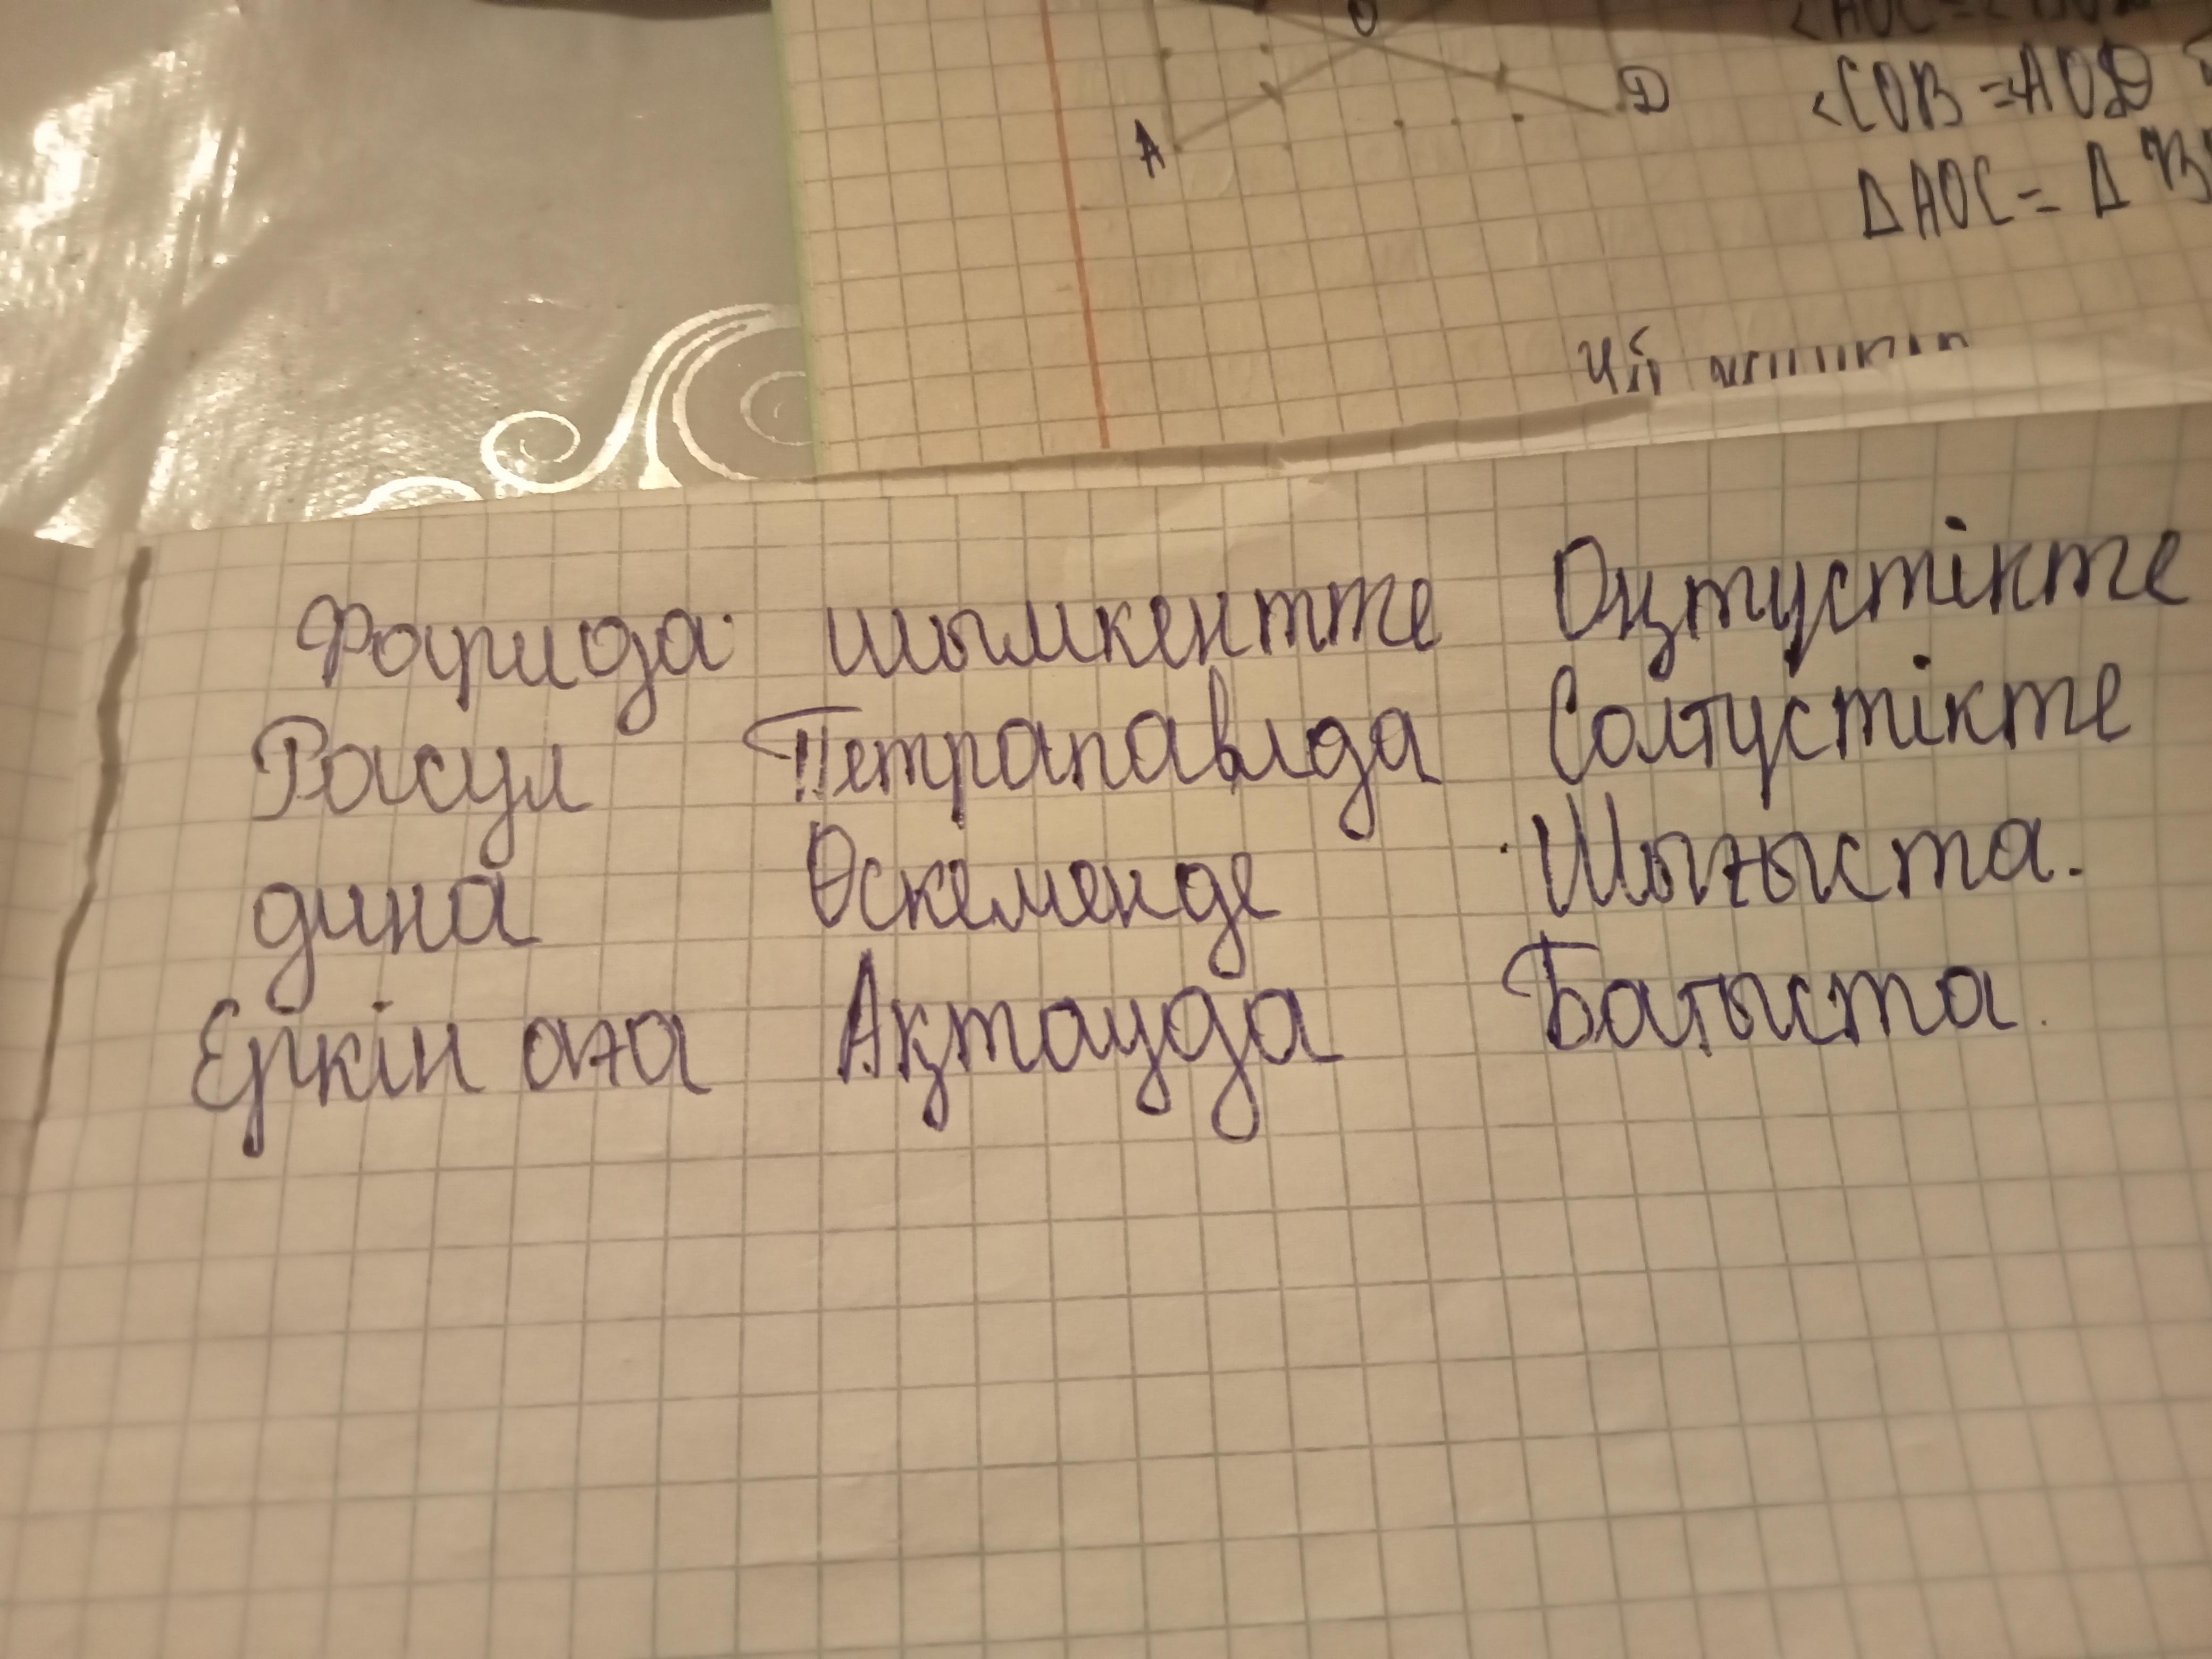 О
Д
А
<COB = <AOD
Δ AOC = Δ
Үй
Фарида шымкентте Оңтүстікте
Расул Петрапавлда Солтүстікте
дина Өскеменде Шығыста.
Еркін аға Ақтауда Батыста.